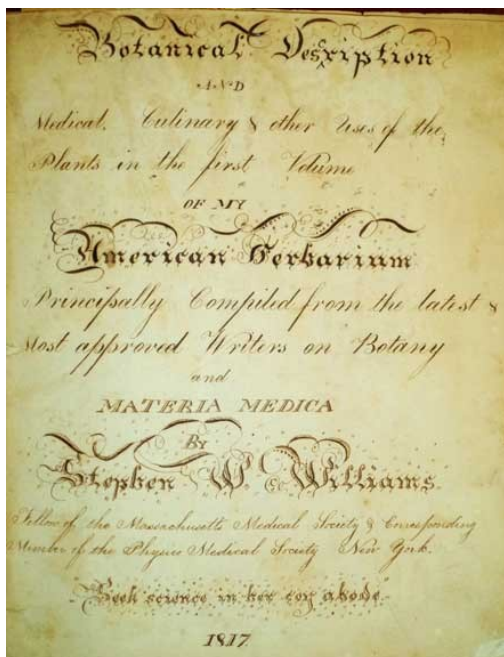 Botanical Description
AND
Medical, Culinary & other Uses of the
Plants in the first Volume
OF MY
American Herbarium
Principally Compiled from the latest &
Most approved Writers on Botany
and
MATERIA MEDICA
By
Stephen W. Williams
Fellow of the Massachusetts Medical Society & Corresponding
Member of the Physico Medical Society New York.
Seek science in her coy abode
1817